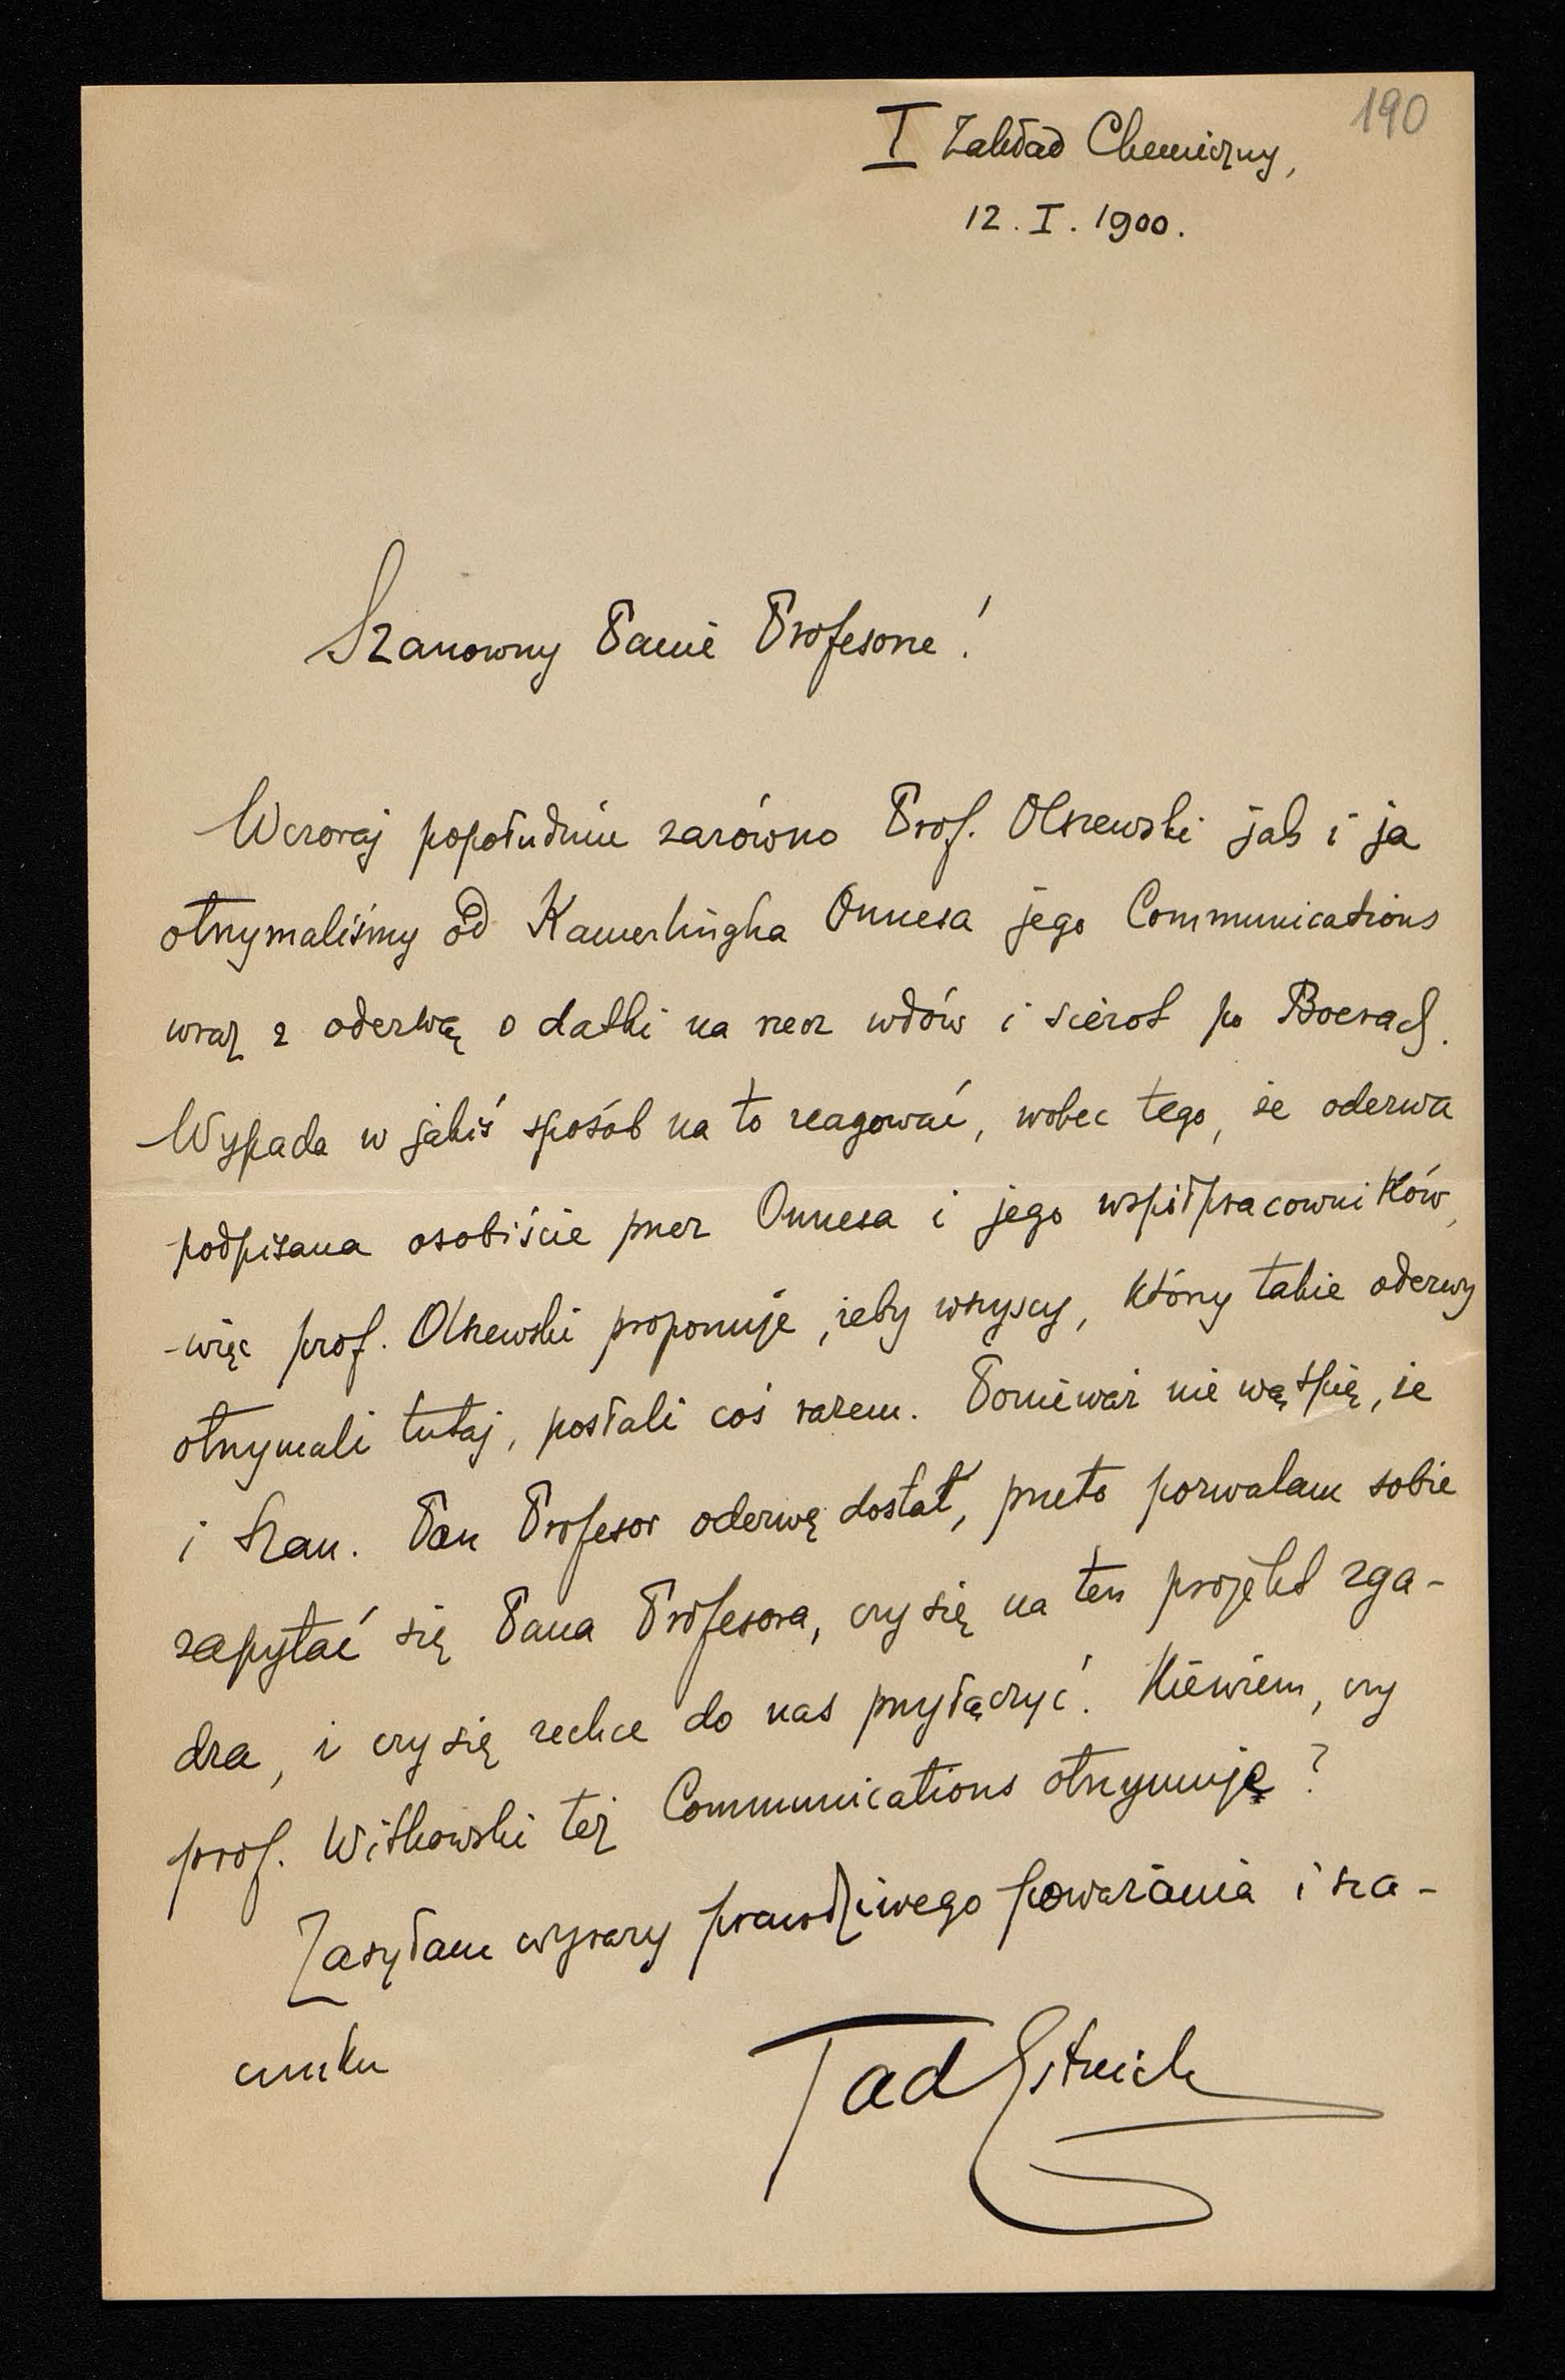 190
I Zakład Chemiczny,
12. I. 1900.
Szanowny Panie Profesorze!
Wczoraj popołudniu zarówno Prof. Olszewski jak i ja
otrzymaliśmy od Kamerlingha Onnesa jego Communications
wraz z odezwą o datki na rzecz wdów i sierot po Boerach.
Wypada w jakiś sposób na to reagować, wobec tego, że odezwa
podpisana osobiście przez Onnesa i jego współpracowników,
więc prof. Olszewski proponuje, żeby wszyscy, którzy takie odezwy
otrzymali tutaj, posłali coś razem. Ponieważ nie wątpię, że
i Szan. Pan Profesor odezwę dostał, przeto pozwalam sobie
zapytać się Pana Profesora, czy się na ten projekt zga-
dza, i czy się zechce do nas przyłączyć. Niewiem, czy
prof. Witkowski też Communications otrzymuje?
Zasyłam wyrazy prawdziwego poważania i sza-
cunku
Tad Estreich